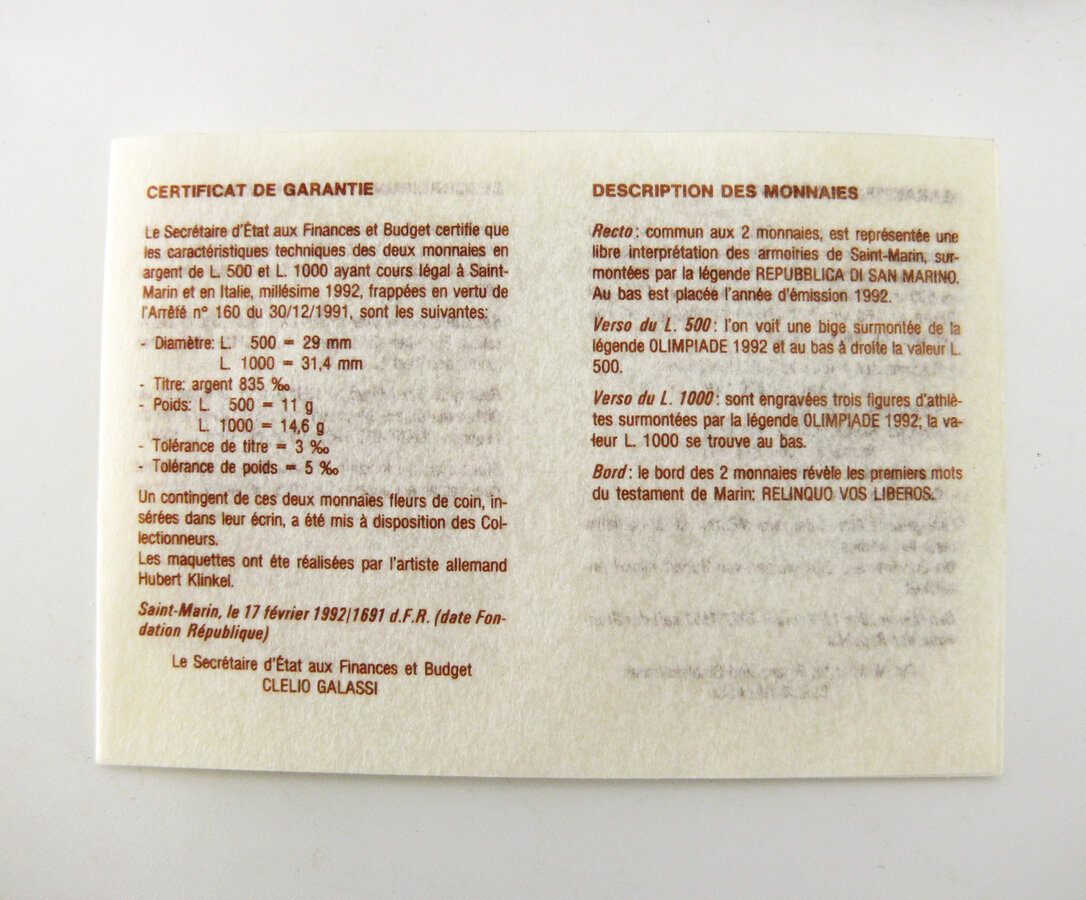 CERTIFICAT DE GARANTIE
Le Secrétaire d'État aux Finances et Budget certifie que
les caractéristiques techniques des deux monnaies en
argent de L. 500 et L. 1000 ayant cours légal à Saint-
Marin et en Italie, millésime 1992, frappées en vertu de
l'Arrêté n° 160 du 30/12/1991, sont les suivantes:
- Diamètre: L. 500 = 29 mm
L. 1000 = 31,4 mm
- Titre: argent 835 ‰
- Poids: L. 500 = 11 g
L. 1000 = 14,6 g
- Tolérance de titre = 3 ‰
- Tolérance de poids = 5 ‰
Un contingent de ces deux monnaies fleurs de coin, in-
sérées dans leur écrin, a été mis à disposition des Col-
lectionneurs.
Les maquettes ont éte réalisées par l'artiste allemand
Hubert Klinkel.
Saint-Marin, le 17 février 1992/1691 d.F.R. (date Fon-
dation République)
Le Secrétaire d'État aux Finances et Budget
CLELIO GALASSI
DESCRIPTION DES MONNAIES
Recto: commun aux 2 monnaies, est représentée une
libre interprétation des armoiries de Saint-Marin, sur-
montées par la légende REPUBBLICA DI SAN MARINO.
Au bas est placée l'année d'émission 1992.
Verso du L. 500: l'on voit une bige surmontée de la
légende OLIMPIADE 1992 et au bas à droite la valeur L.
500.
Verso du L. 1000: sont engravées trois figures d'athlè-
tes surmontées par la légende OLIMPIADE 1992; la va-
leur L. 1000 se trouve au bas.
Bord: le bord des 2 monnaies révèle les premiers mots
du testament de Marin: RELINQUO VOS LIBEROS.